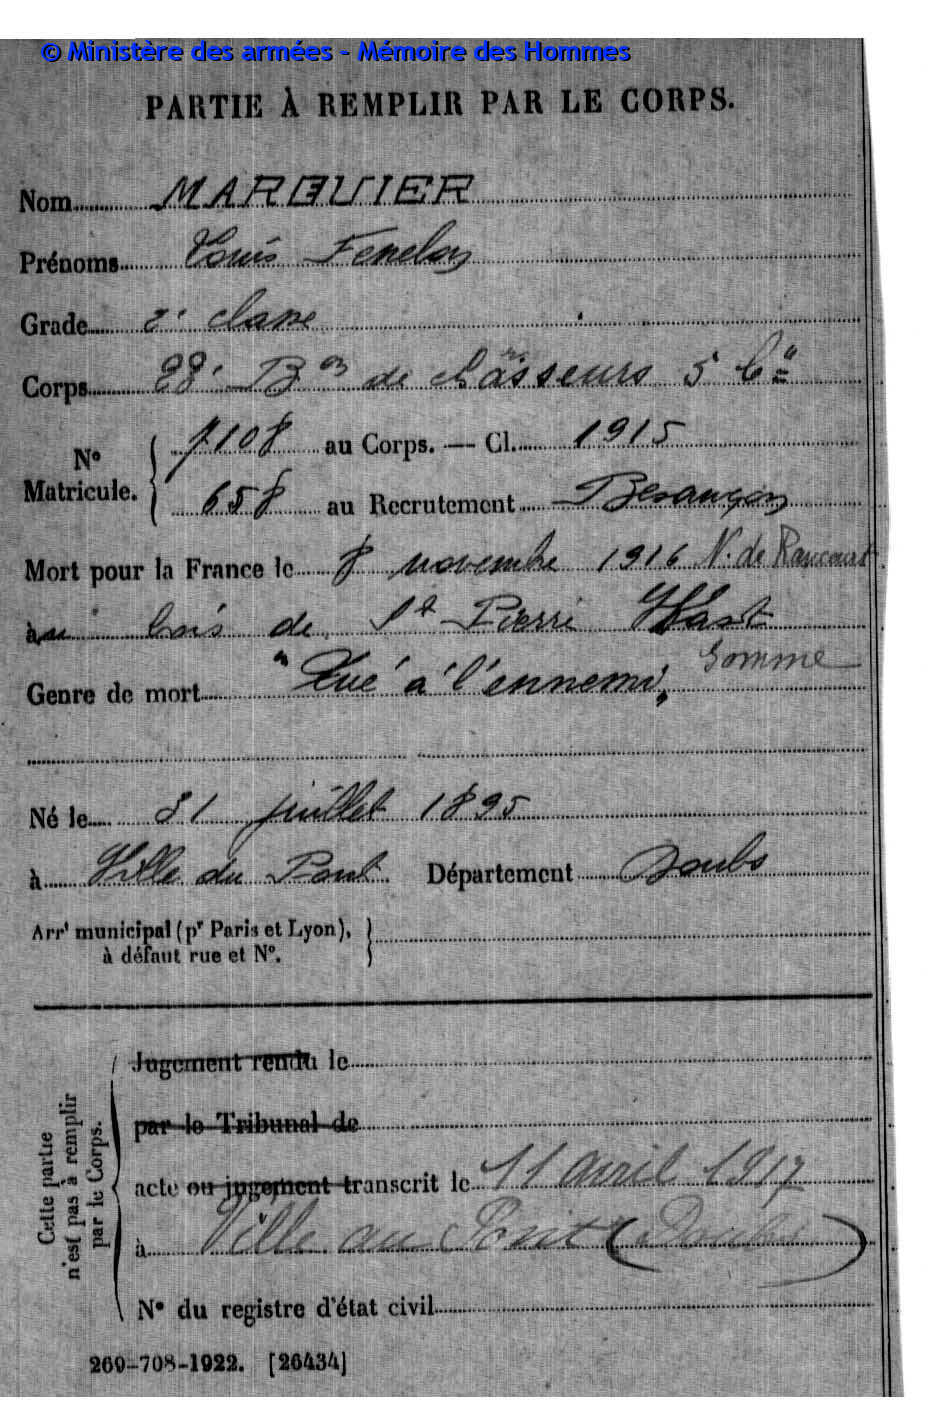 © Ministère des armées - Mémoire des Hommes
PARTIE À REMPLIR PAR LE CORPS.
Nom MARGUIER
Prénoms Louis Fenelon
Grade 2e classe
Corps 28e Bon de Chasseurs 5 Cie
N° Matricule. 7108 au Corps. — Cl. 1915
658 au Recrutement Besançon
Mort pour la France le 8 novembre 1916 N. de Rancourt
au bois de St Pierre Wast
Somme
Genre de mort "Tué à l'ennemi"
Né le 31 juillet 1895
à Ville du Pont Département Doubs
Arrt municipal (pr Paris et Lyon),
à défaut rue et N°.
Cette partie n'est pas à remplir par le Corps.
Jugement rendu le
par le Tribunal de
acte ou jugement transcrit le 11 avril 1917
à Ville du Pont (Doubs)
N° du registre d'état civil
269-708-1922. [26434]